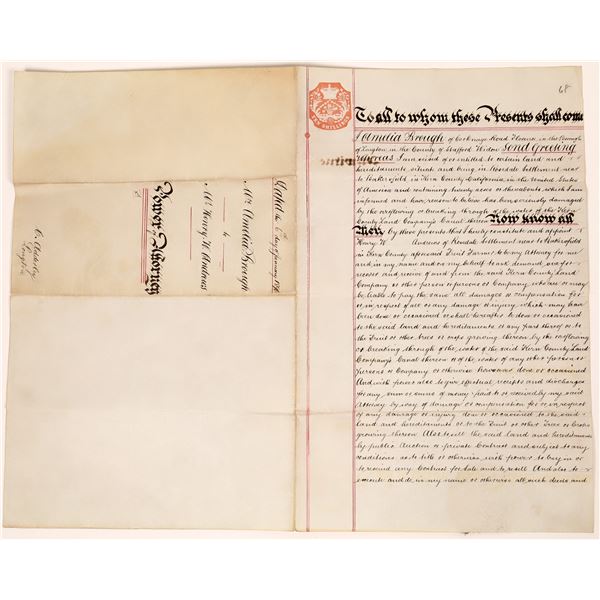 68
TEN SHILLINGS
To all to whom these Presents shall come
I Amelia Brough of Road in the Borough
of Longton in the County of Stafford Widow Send Greeting
Whereas I am seized of or entitled to certain land and
hereditaments situate and being in Rosedale Settlement near
to Bakersfield in Kern County California in the United States
of America and containing twenty acres or thereabouts which I am
informed and have reason to believe has been seriously damaged
by the overflowing or breaking through of the water of the Kern
County Land Company's Canal thereon Now know all
Men by these presents that I hereby constitute and appoint
Henry W Andrews of Rosedale Settlement near to Bakersfield
in Kern County aforesaid Fruit Farmer to be my Attorney for me
and in my name and on my behalf to ask demand sue for
recover and receive of and from the said Kern County Land
Company or other person or persons or company who are or may
be liable to pay the same all damages or compensation for
or in respect of all or any damage or injury which may have
been done or occasioned or shall hereafter be done or occasioned
to the said land and hereditaments or any part thereof or to
the Fruit or other trees or crops growing thereon by the overflowing
or breaking through of the water of the said Kern County Land
Company's Canal thereon or of the water of any other person or
persons or Company or otherwise however done or occasioned
And with power also to give effectual receipts and discharges
for any sum or sums of money paid to or received by my said
Attorney by way of damage or compensation for or in respect
of any damage or injury done or occasioned to the said
land and hereditaments or to the Fruit or other Trees or Crops
growing thereon Also to sell the said land and hereditaments
by public Auction or private Contract and subject to any
conditions as to title or otherwise with power to buy in or
to rescind any Contract for Sale and to resell And also to
execute and do in my name or otherwise all such deeds and
Dated the 6th day of January 189
Mrs Amelia Brough
to
Mr Henry W. Andrews
Power of Attorney
Longton